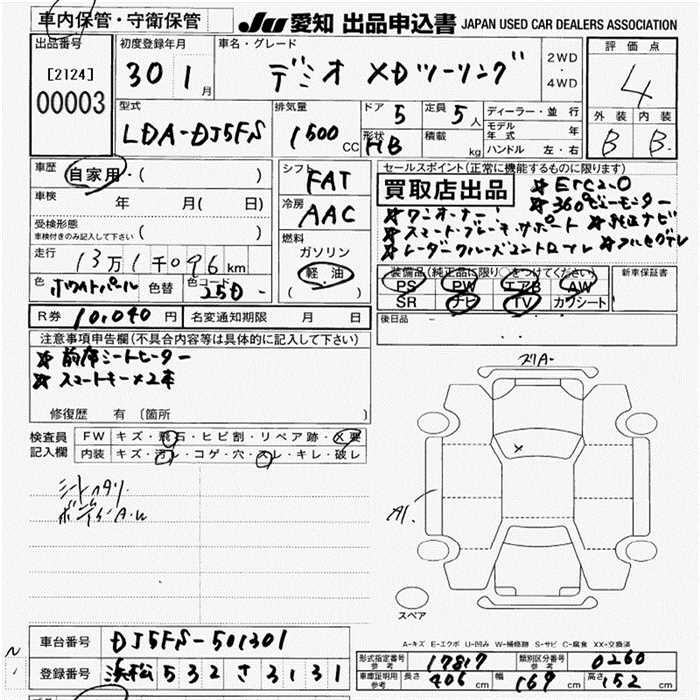 車内保管・守衛保管
JU 愛知 出品申込書 JAPAN USED CAR DEALERS ASSOCIATION
出品番号
[2124]
00003
初度登録年月
30 1 月
車名・グレード
デミオ XDツーリング
2WD
・
4WD
評価点
4
外装 内装
B B
型式
LDA-DJ5FS
排気量
1500 CC
ドア 5
定員 5 人
形状 HB
積載 kg
ディーラー・並行
モデル年式 年
ハンドル 左・右
車歴 自家用・( )
車検 年 月( 日)
受検形態
車検付きのみ記入して下さい ( )
走行 13万1千096km
色 ホワイトパール 色替 色コード 25D
シフト FAT
冷房 AAC
燃料
ガソリン
軽油
( )
セールスポイント(正常に機能するものに限ります)
買取店出品
☆ETC2.0
☆360°ビューモニター
☆ワンオーナー
☆スマートブレーキサポート ☆純正ナビ
☆レーダークルーズコントロール ☆フルセグTV
装備品(純正品に限り○をつけてください)
PS PW エアB AW
SR ナビ TV カワシート
新車保証書
後日品
R券 10,040 円 名変通知期限 月 日
注意事項申告欄(不具合内容等は具体的に記入して下さい)
☆前席シートヒーター
☆スマートキー×2本
修復歴 有 〔箇所 〕
検査員
記入欄
FW キズ・飛石・ヒビ割・リペア跡・X要
内装 キズ・汚レ・コゲ・穴・スレ・キレ・破レ
シートヘタリ
ボディ A.U
スリA-
×
A1.
スペア
A-キズ E-エクボ U-凹み W-補修跡 S-サビ C-腐食 XX-交換済
車台番号 DJ5FS-501301
登録番号 浜松 532 さ 3131
形式指定番号参考 17817
類別区分番号参考 0260
車庫証明用参考 長さ 406 cm 幅 169 cm 高さ 152 cm